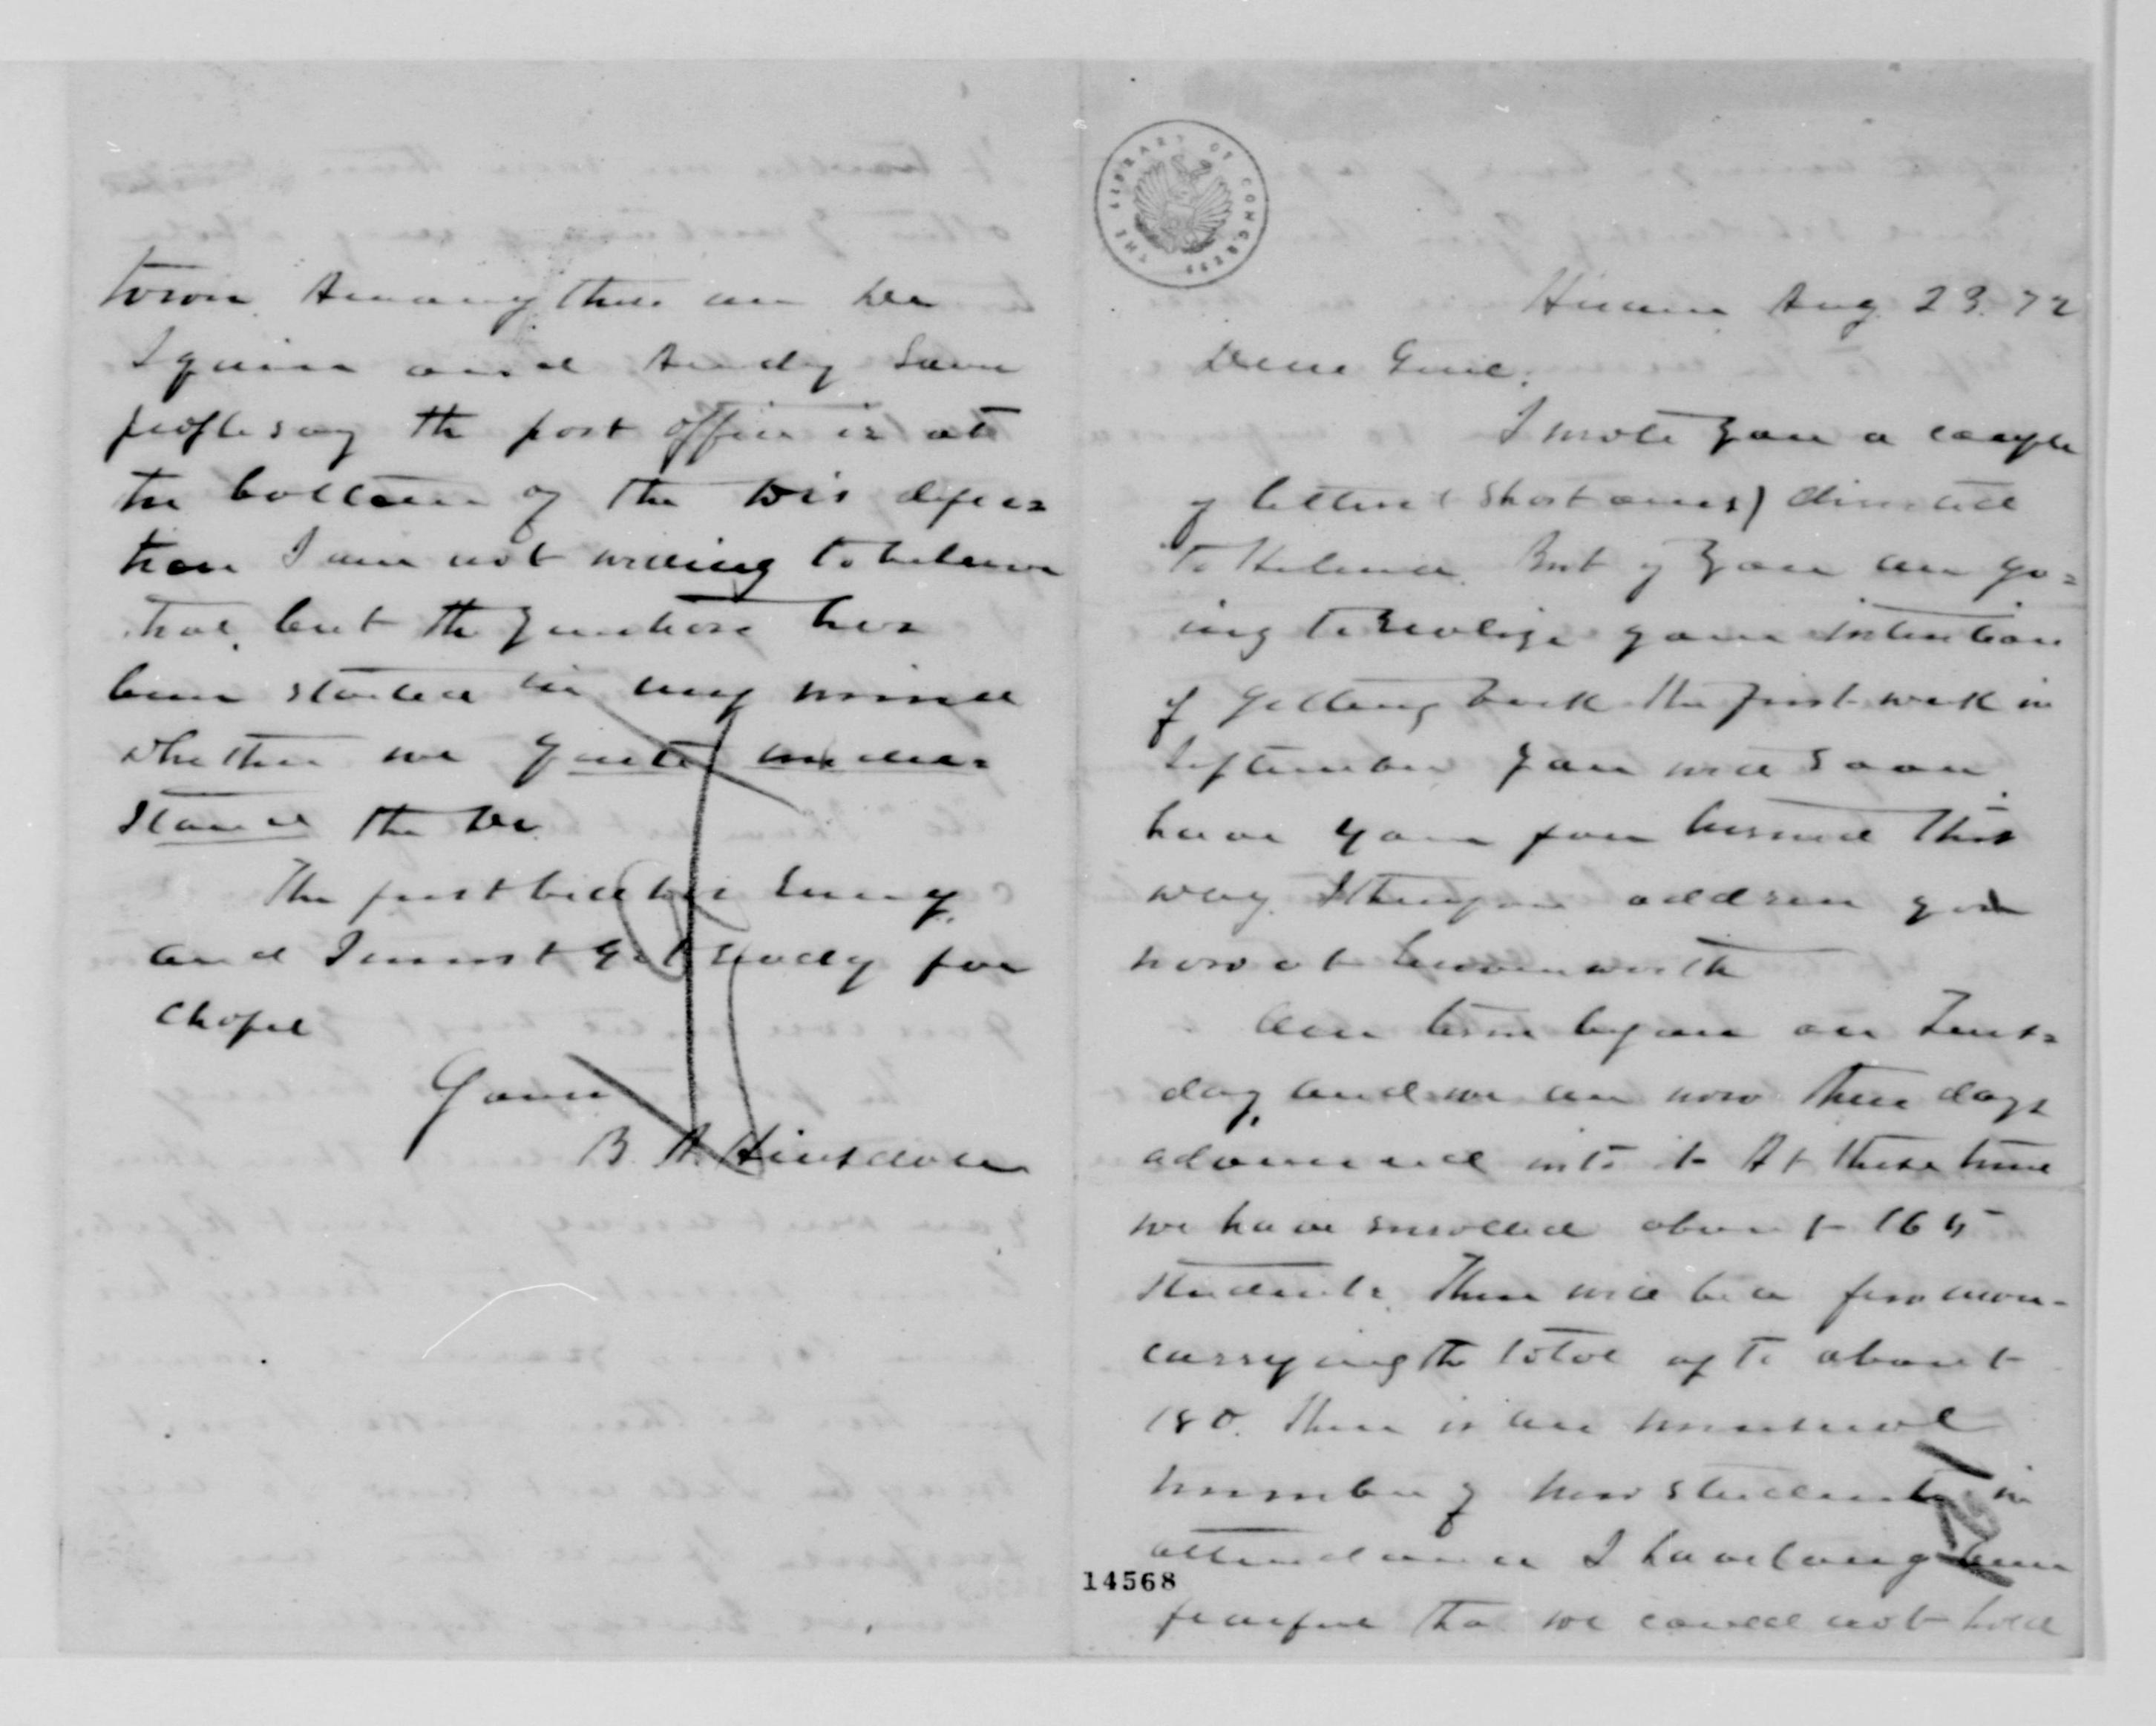 town. Among these are Dr
Squire and Andy Some
people say the post office is at
the bottom of the Drs defec=
tion I am not willing to believe
that, but the question has
been started in my mind
whether we quite under=
stand the Dr.
The first bell has rung,
and I must get ready for
chapel
Yours
B. A. Hinsdale
THE LIBRARY OF CONGRESS
Hiram Aug. 23. 72
Dear Genl.
I wrote you a couple
of letters (short ones) directed
to Helena. But if you are go=
ing to realize your intention
of getting back the first week in
September you will soon
have your face turned this
way. I therefore address you
now at Leavenworth
Our term began on Tues=
day, and we are now three days
advanced into it At this time
we have enrolled about 165
students. There will be a few more
carrying the total up to about
180. There is an unusual
number of new students in
attendance I have long been
14568
fearful that we could not hold